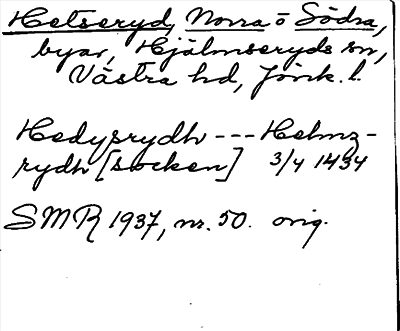 Hetseryd, Norra o Södra,
byar, Hjälmseryds sn,
Västra hd, Jönk. l.
Hedysrydh --- Helmz-
rydh [socken] 3/4 1434
SMR 1937, nr. 50. orig.